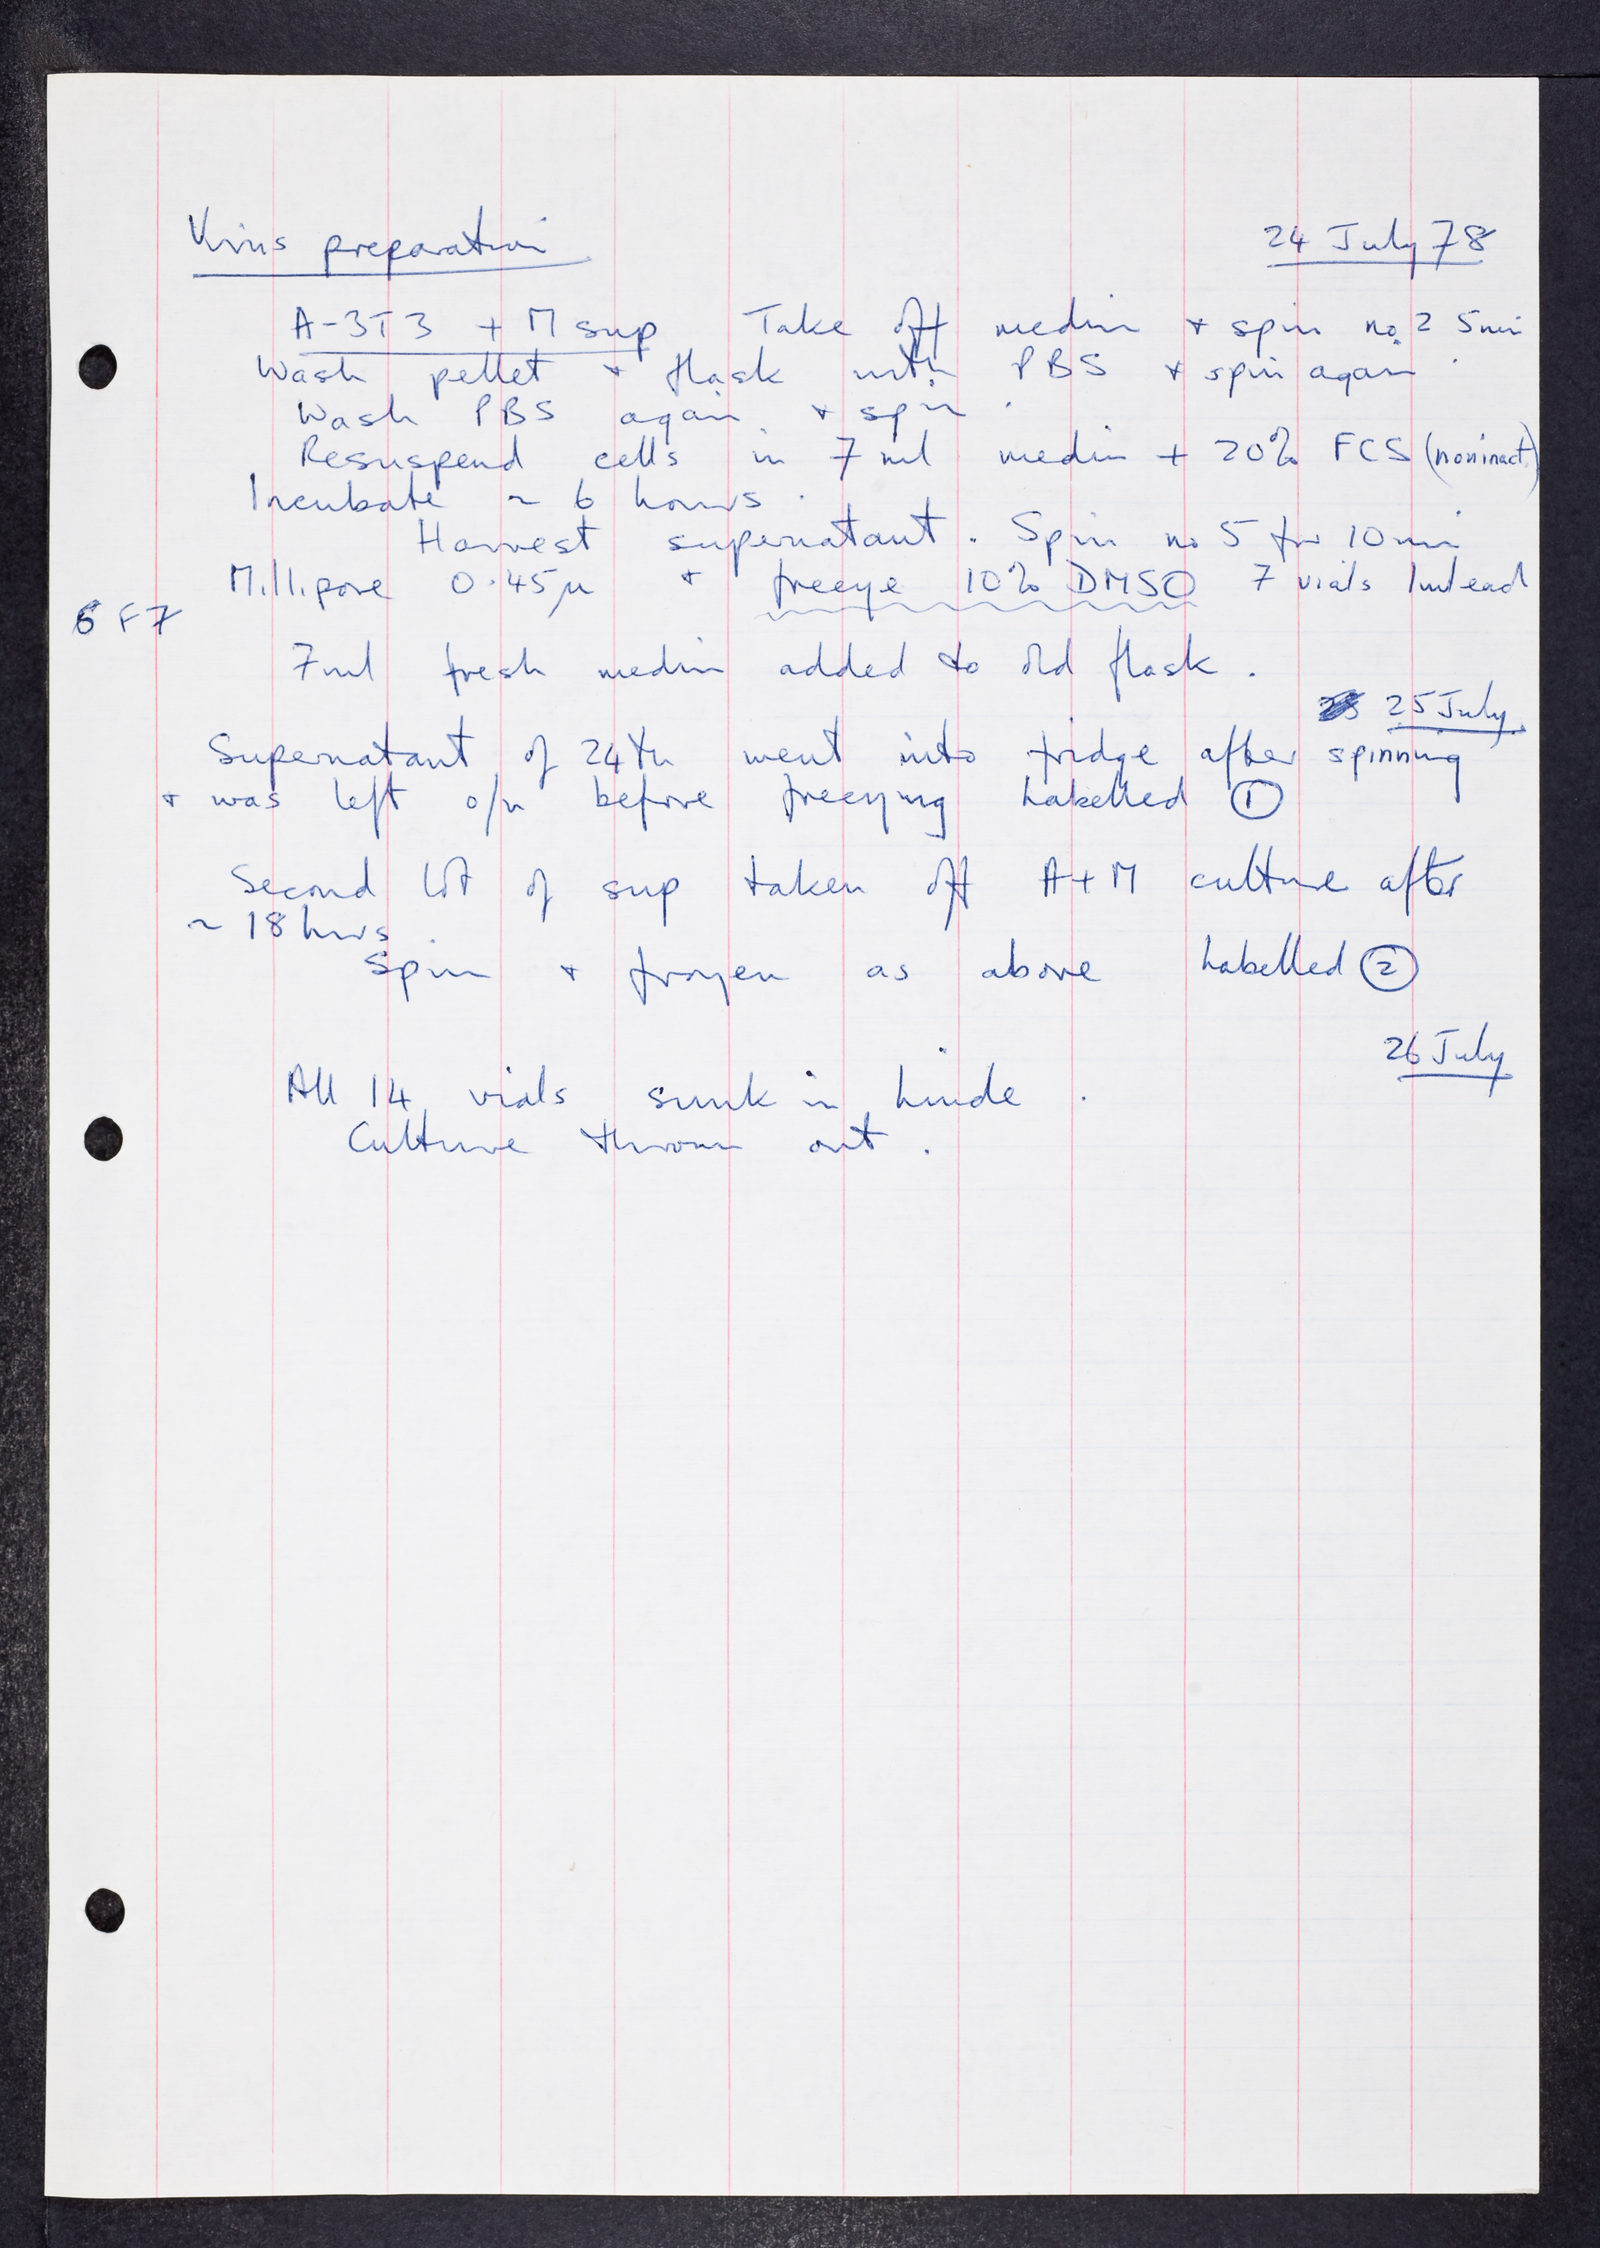 Virus preparation 24 July 78
A-3T3 + M sup Take off medium + spin no 2 5 min
Wash pellet + flask with PBS + spin again.
Wash PBS again + spin.
Resuspend cells in 7 ml medium + 20% FCS (noninact.)
Incubate ~ 6 hours.
Harvest supernatant. Spin no 5 for 10 min
Millipore 0.45μ + freeze 10% DMSO 7 vials
6 F7
7ml fresh medium added to old flask.
25 July
Supernatant of 24th went into fridge after spinning
+ was left o/n before freezing Labelled ①
Second lot of sup taken off A+M culture after
~ 18 hrs.
Spin + frozen as above Labelled ②
26 July
All 14 vials sunk in Linde.
Culture thrown out.